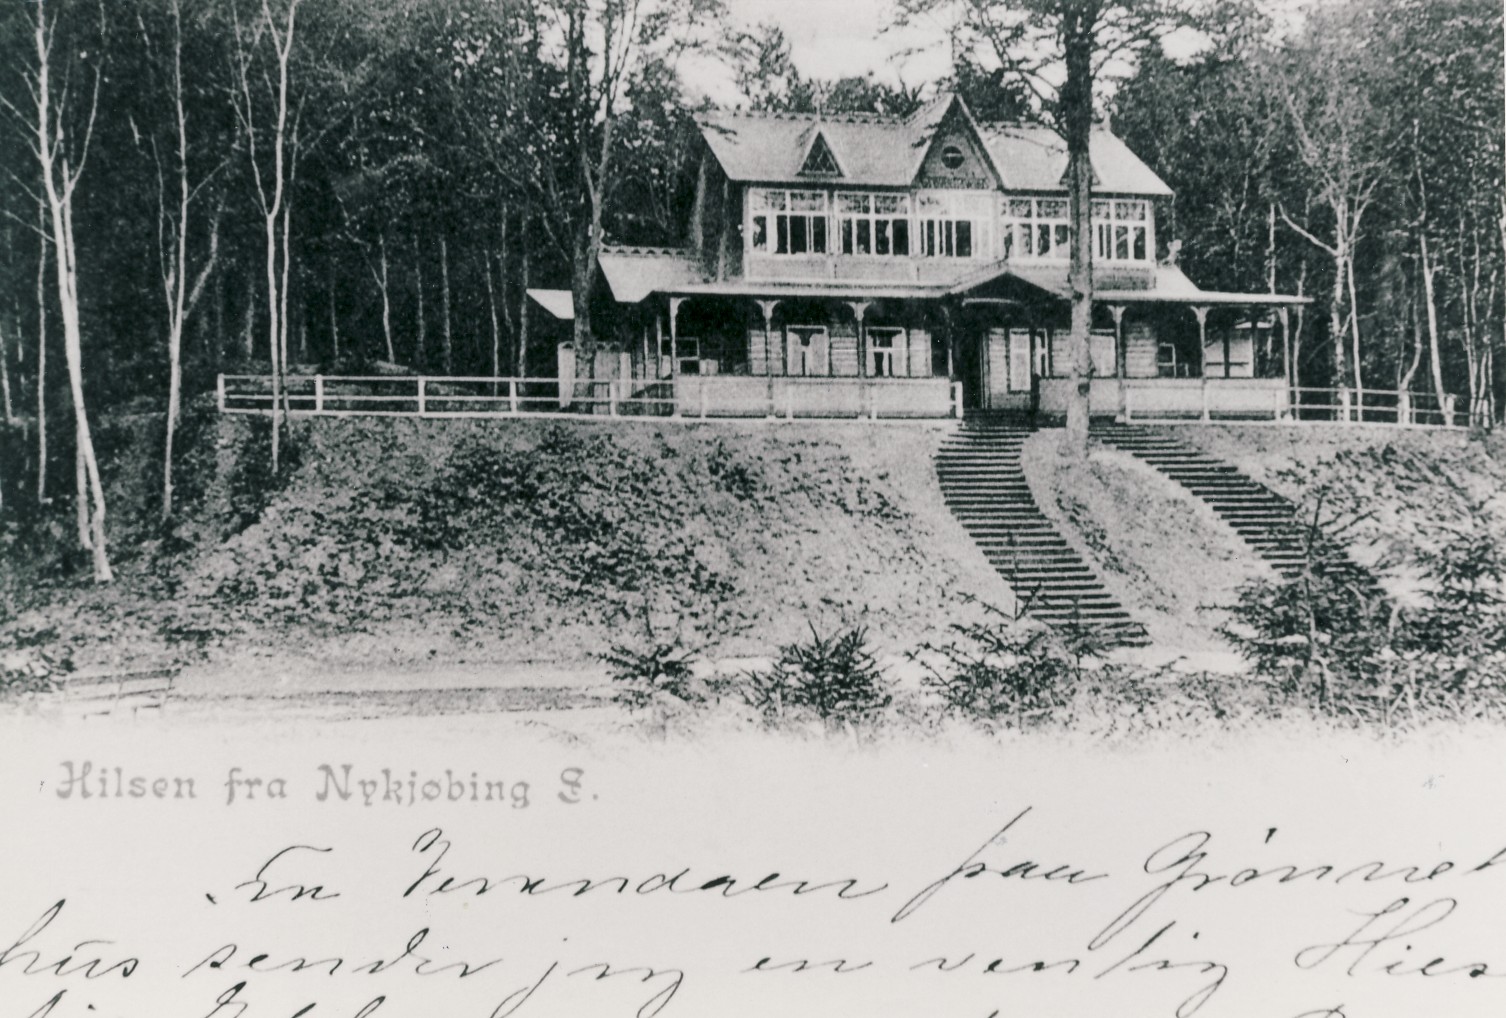 Hilsen fra Nykjøbing S.
Verandaen paa Grønne
hus sender jeg en venlig